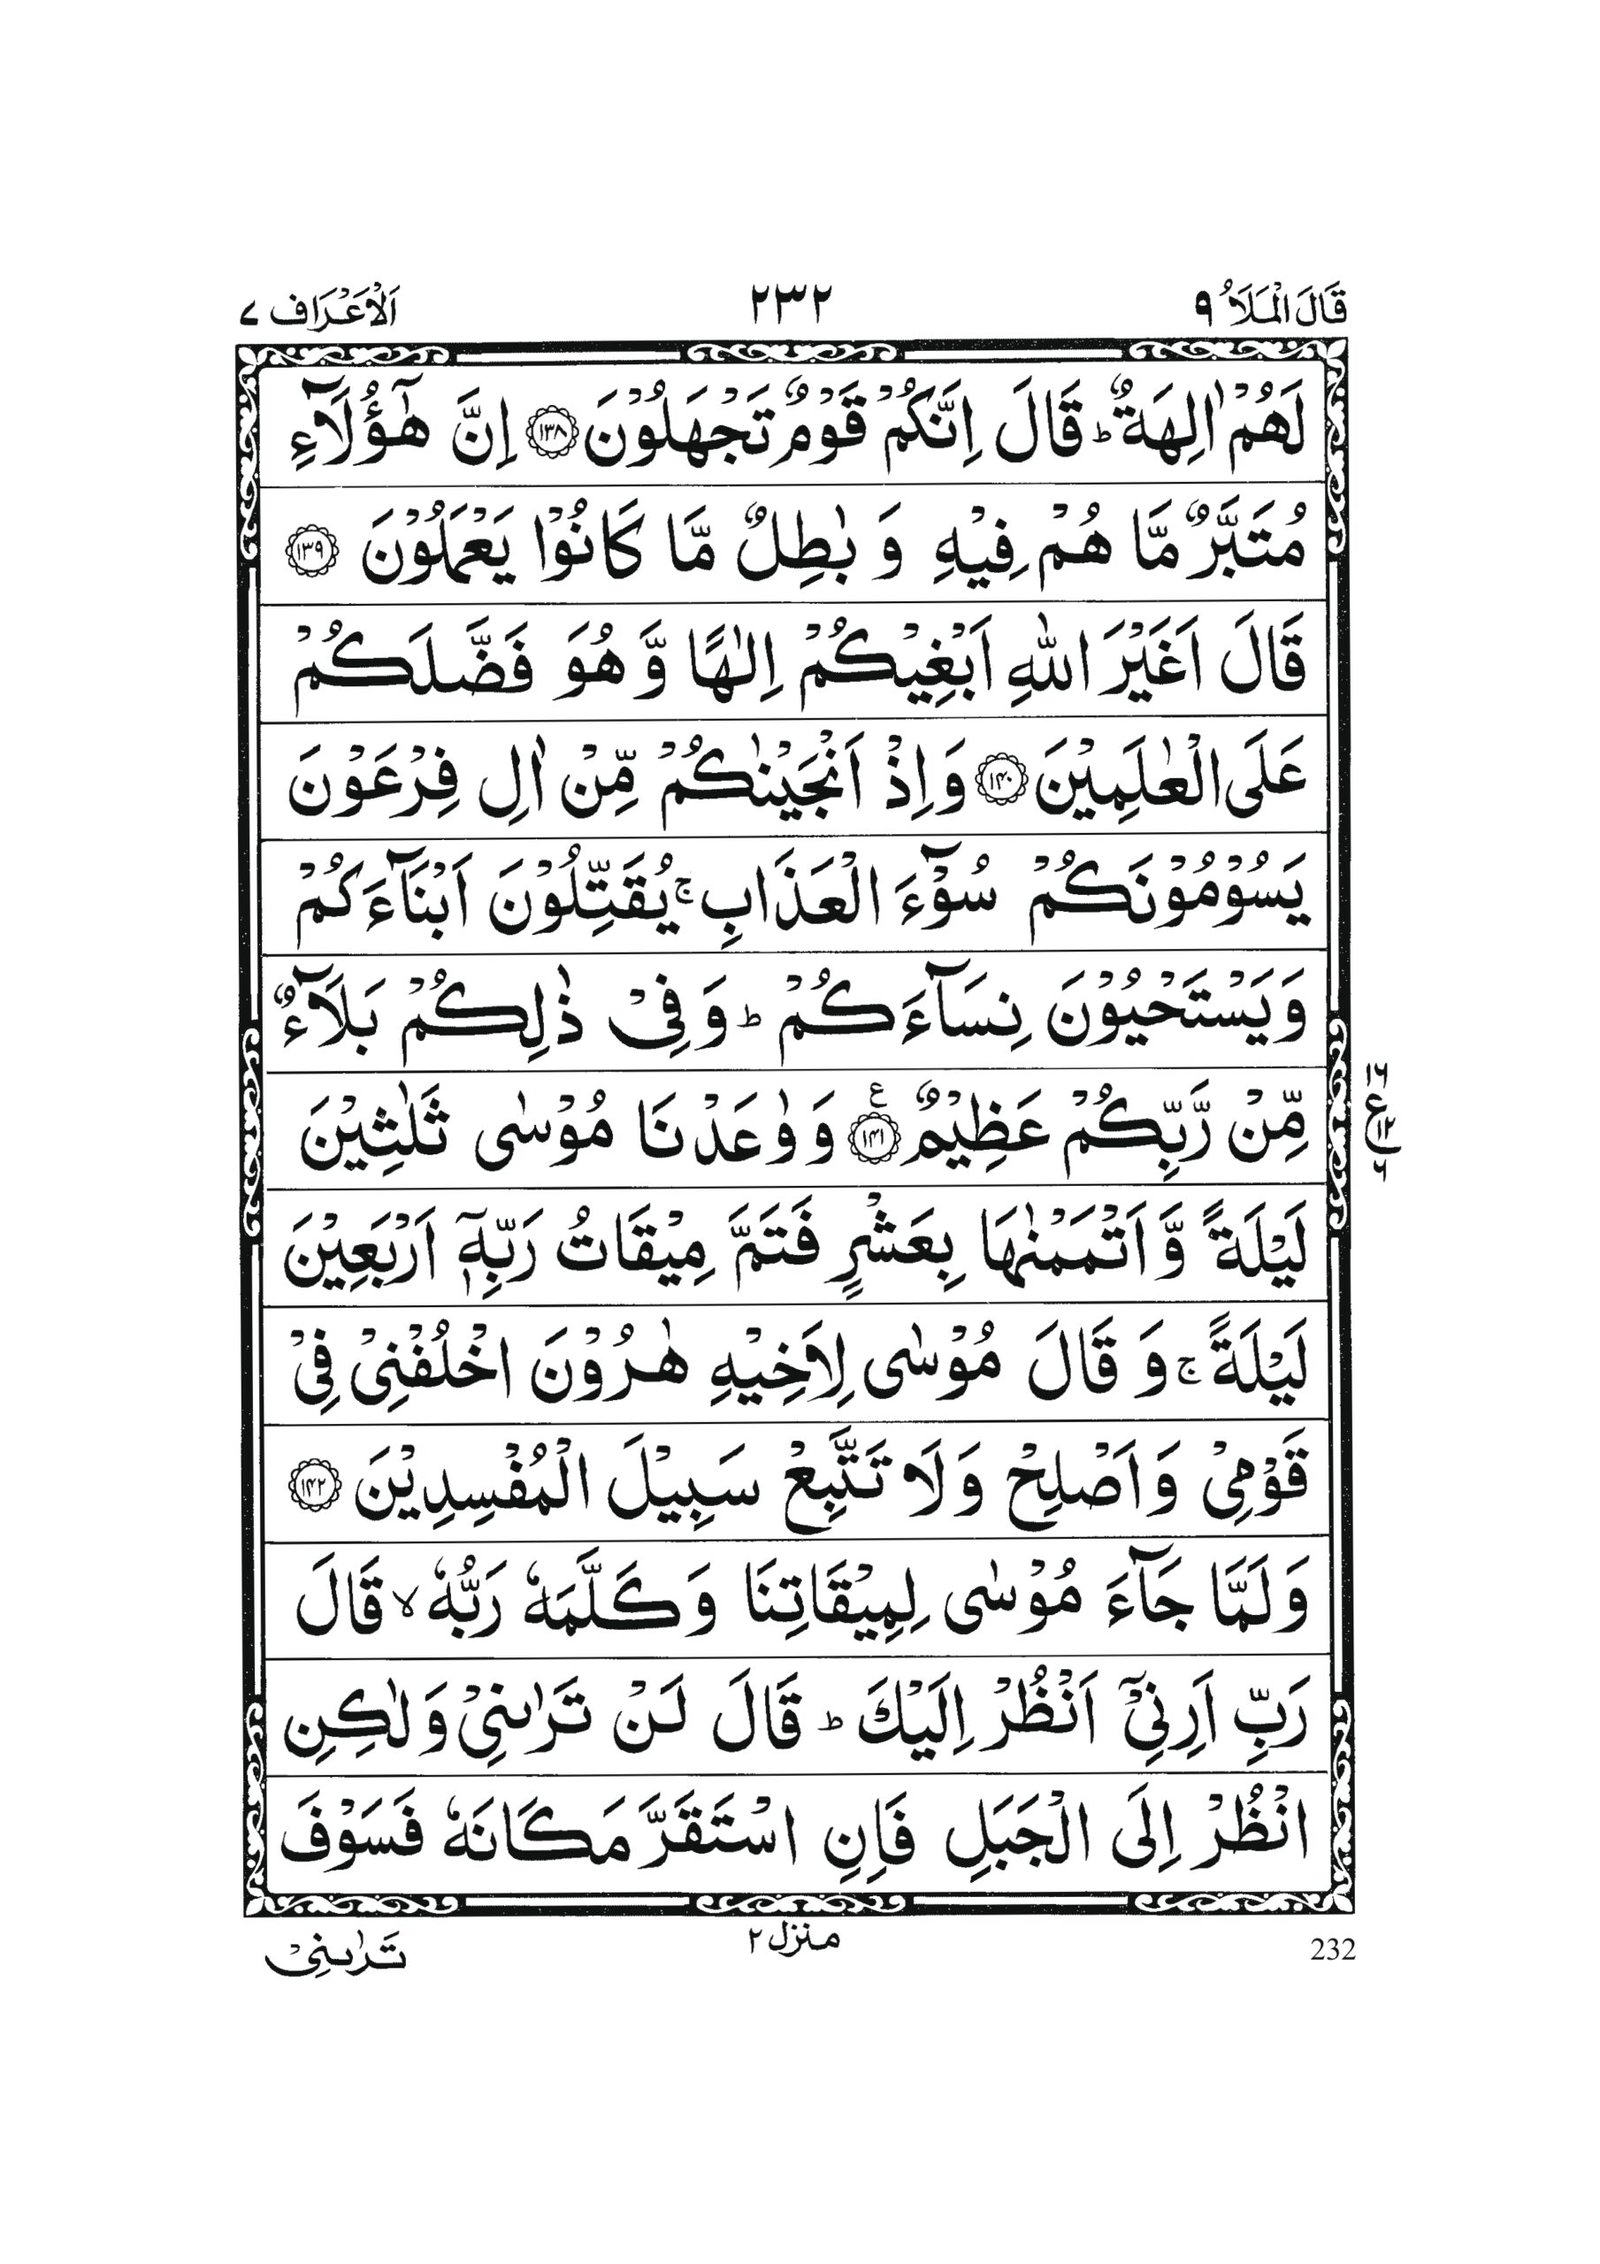 قَالَ الْمَلَاُ ۹
۲۳۲
اَلْاَعْرَاف ۷
لَهُمْ اٰلِهَةٌ ؕ قَالَ اِنَّكُمْ قَوْمٌ تَجْهَلُوْنَ ﴿۱۳۸﴾ اِنَّ هٰۤؤُلَآءِ
مُتَبَّرٌ مَّا هُمْ فِيْهِ وَ بٰطِلٌ مَّا كَانُوْا يَعْمَلُوْنَ ﴿۱۳۹﴾
قَالَ اَغَيْرَ اللّٰهِ اَبْغِيْكُمْ اِلٰهًا وَّ هُوَ فَضَّلَكُمْ
عَلَى الْعٰلَمِيْنَ ﴿۱۴۰﴾ وَ اِذْ اَنْجَيْنٰكُمْ مِّنْ اٰلِ فِرْعَوْنَ
يَسُوْمُوْنَكُمْ سُوْٓءَ الْعَذَابِ ۚ يُقَتِّلُوْنَ اَبْنَآءَكُمْ
وَيَسْتَحْيُوْنَ نِسَآءَكُمْ ؕ وَ فِيْ ذٰلِكُمْ بَلَآءٌ
مِّنْ رَّبِّكُمْ عَظِيْمٌ ﴿۱۴۱﴾ ع وَ وٰعَدْنَا مُوْسٰى ثَلٰثِيْنَ
لَيْلَةً وَّ اَتْمَمْنٰهَا بِعَشْرٍ فَتَمَّ مِيْقَاتُ رَبِّهٖۤ اَرْبَعِيْنَ
لَيْلَةً ۚ وَ قَالَ مُوْسٰى لِاَخِيْهِ هٰرُوْنَ اخْلُفْنِيْ فِيْ
قَوْمِيْ وَ اَصْلِحْ وَلَا تَتَّبِعْ سَبِيْلَ الْمُفْسِدِيْنَ ﴿۱۴۲﴾
وَ لَمَّا جَآءَ مُوْسٰى لِمِيْقَاتِنَا وَ كَلَّمَهٗ رَبُّهٗ ۙ قَالَ
رَبِّ اَرِنِيْۤ اَنْظُرْ اِلَيْكَ ؕ قَالَ لَنْ تَرٰىنِيْ وَ لٰكِنِ
انْظُرْ اِلَى الْجَبَلِ فَاِنِ اسْتَقَرَّ مَكَانَهٗ فَسَوْفَ
232
منزل ۲
تَرٰىنِيْ